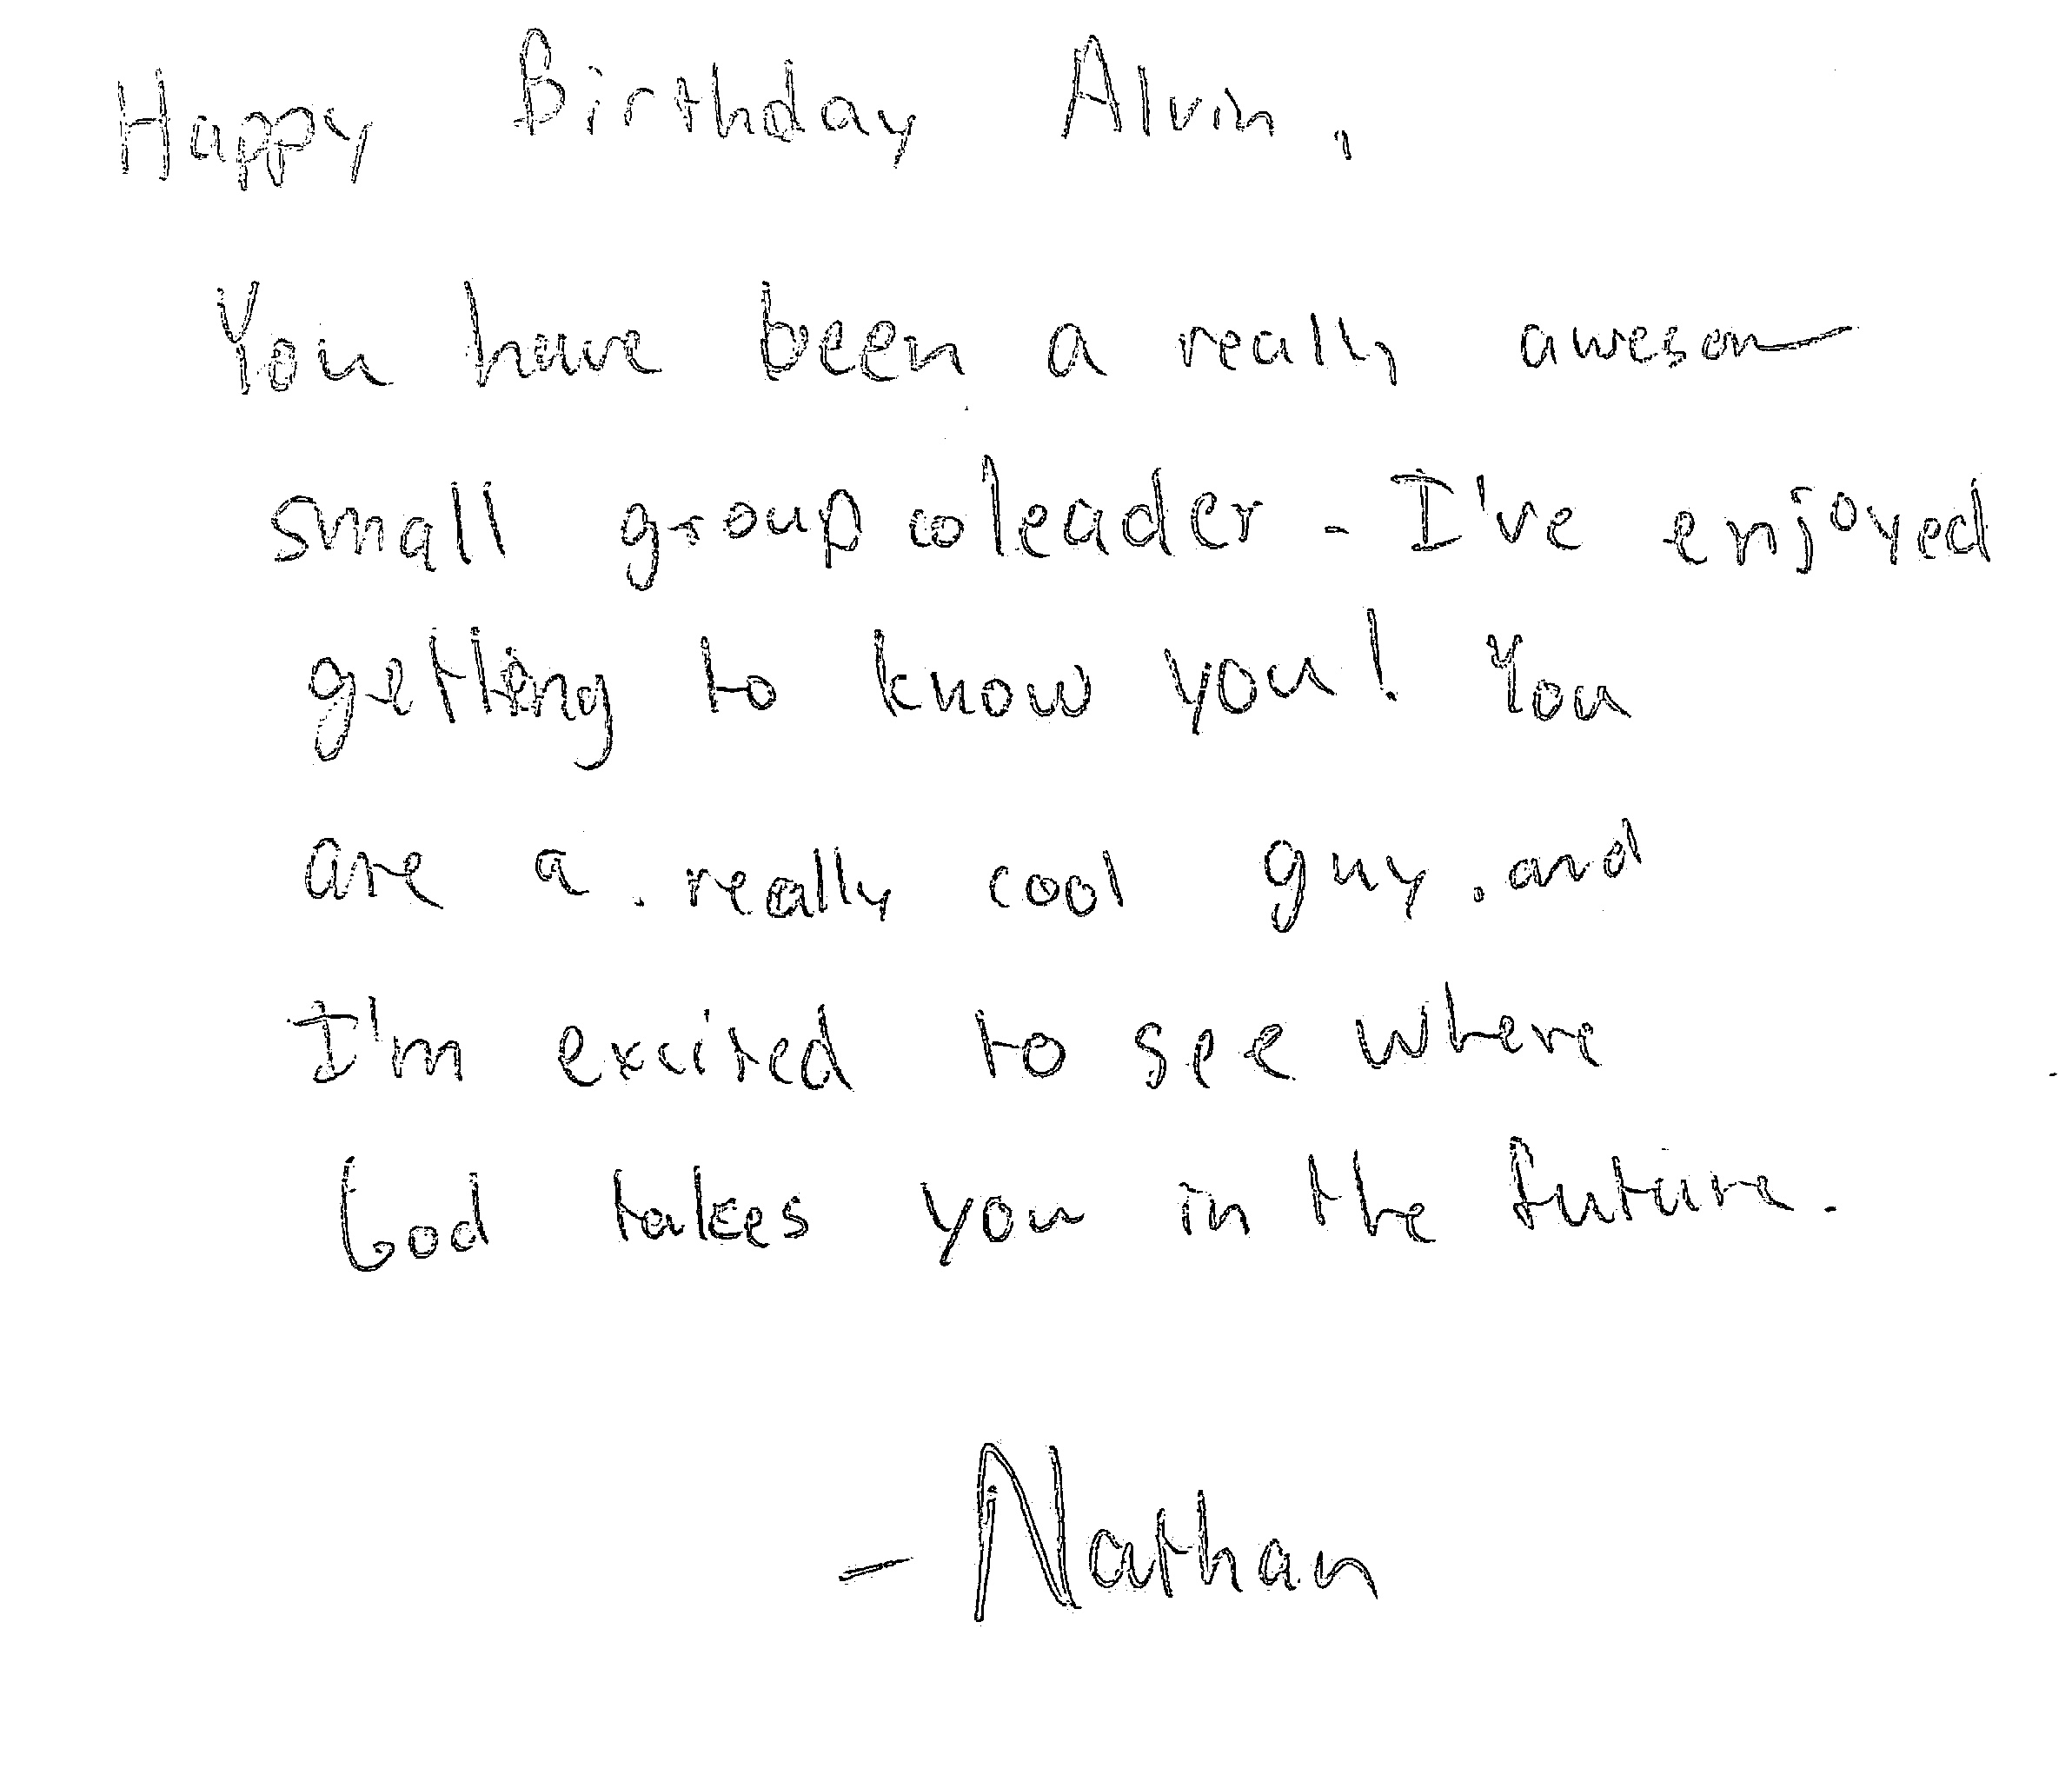 Happy Birthday Alvin,
You have been a really awesom
small group coleader - I've enjoyed
getting to know you! You
are a really cool guy. and
I'm excited to see where
God takes you in the future.
- Nathan